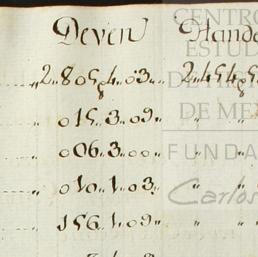 Deven Hande
2.8054..03.. 2.4545
015..3..09..
006.3..00..
010..1..03.
156.1..09..
CENTRO
ESTUD
DE MEX
FUNDA
Carlos